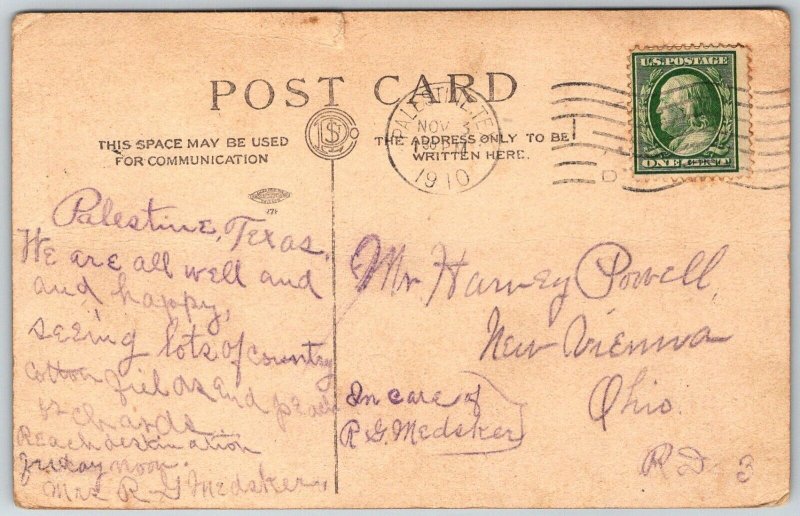 POST CARD
THIS SPACE MAY BE USED
FOR COMMUNICATION
THE ADDRESS ONLY TO BE
WRITTEN HERE.
PALESTINE, TEX
NOV 3
1910
U.S. POSTAGE
ONE CENT
Palestine, Texas.
We are all well and
and happy,
seeing lots of country
cotton fields and peach
orchards
Reach destination
friday noon.
Mrs R G Medsker,
Mr Harvey Powell
New Vienna
Ohio.
In care of
R. G. Medsker
R D 3